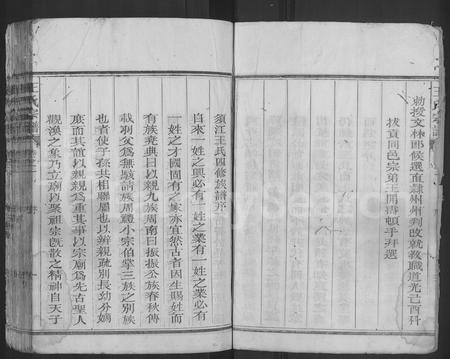 勅授文林郎候選直隷州州判改就教職道光己酉科
拔貢同邑宗弟王開傳頓手拜選
須江王氏四修族譜序
自來一姓之興必有一姓之業有一姓之業必有
一姓之才國固有之家亦宜然古者因生賜姓而
有族堯典曰以親九族周南曰振振公族春秋傳
載羽父為無駭請族周禮小宗伯掌三族之別族
也者使子孫共相聯屬也以辨親疏別長幼分嫡
庶而其誼以親親為重其事以宗廟為先古聖人
觀渙之象乃立廟以聚祖宗旣散之精神自天子
王氏宗譜